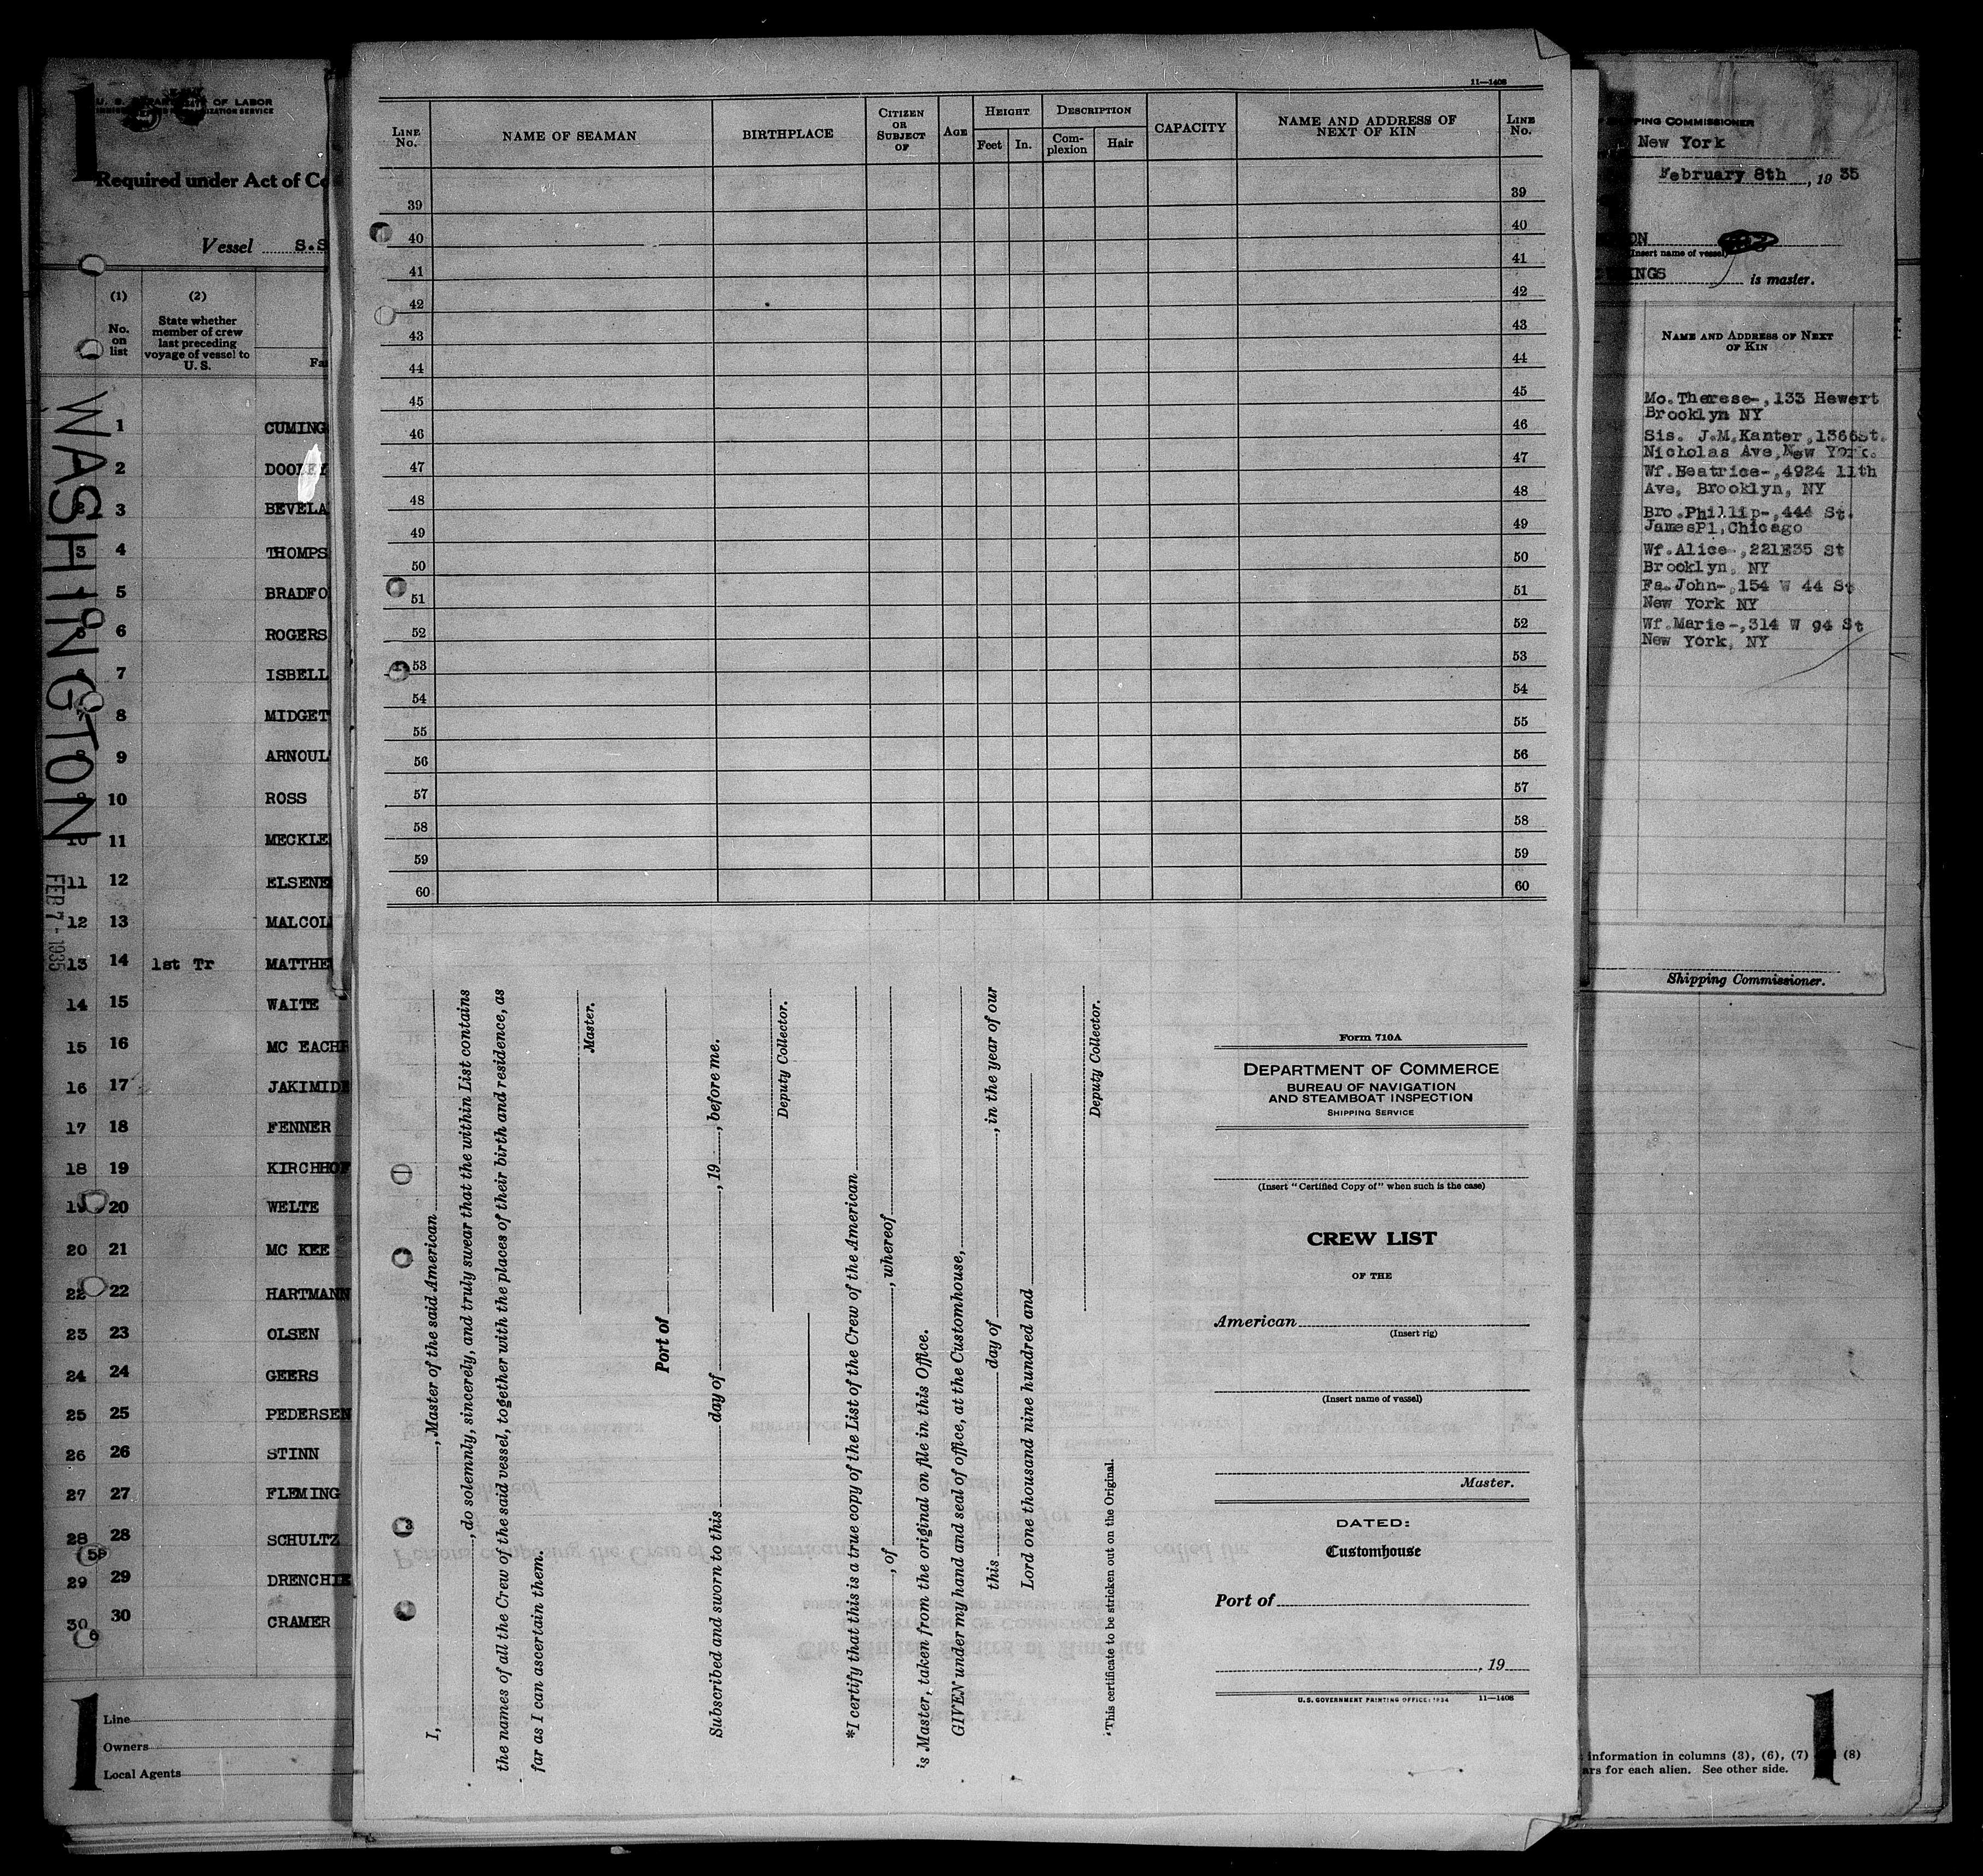 1
U. S. DEPARTMENT OF LABOR
Required under Act of Co
Vessel S.S
(1)
No. on list
(2)
State whether member of crew last preceding voyage of vessel to U. S.
Fa
WASHINGTON
FEB 7 - 1935
1 CUMING
2 DOOLEY
3 BEVELA
3 4 THOMPS
5 BRADFO
6 ROGERS
7 ISBELL
7 8 MIDGET
9 ARNOUL
10 ROSS
10 11 MECKLE
11 12 ELSENE
12 13 MALCOL
13 14 1st Tr MATTHE
14 15 WAITE
15 16 MC EACH
16 17 JAKIMID
17 18 FENNER
18 19 KIRCHHOF
19 20 WELTE
20 21 MC KEE
22 22 HARTMANN
23 23 OLSEN
24 24 GEERS
25 25 PEDERSEN
26 26 STINN
27 27 FLEMING
28 28 SCHULTZ
29 29 DRENCHIE
30 30 CRAMER
1
Line
Owners
Local Agents
11—1408
LINE No.
NAME OF SEAMAN
BIRTHPLACE
CITIZEN OR SUBJECT OF
AGE
HEIGHT
Feet In.
DESCRIPTION
Complexion Hair
CAPACITY
NAME AND ADDRESS OF NEXT OF KIN
LINE No.
39 39
40 40
41 41
42 42
43 43
44 44
45 45
46 46
47 47
48 48
49 49
50 50
51 51
52 52
53 53
54 54
55 55
56 56
57 57
58 58
59 59
60 60
I, , Master of the said American
, do solemnly, sincerely, and truly swear that the within List contains
the names of all the Crew of the said vessel, together with the places of their birth and residence, as
far as I can ascertain them.
Master.
Port of
Subscribed and sworn to this day of , 19 , before me.
Deputy Collector.
*I certify that this is a true copy of the List of the Crew of the American
, of , whereof
is Master, taken from the original on file in this Office.
GIVEN under my hand and seal of office, at the Customhouse,
this day of , in the year of our
Lord one thousand nine hundred and
Deputy Collector.
*This certificate to be stricken out on the Original.
Form 710A
DEPARTMENT OF COMMERCE
BUREAU OF NAVIGATION
AND STEAMBOAT INSPECTION
SHIPPING SERVICE
(Insert "Certified Copy of" when such is the case)
CREW LIST
OF THE
American
(Insert rig)
(Insert name of vessel)
Master.
DATED:
Customhouse
Port of
, 19
U.S. GOVERNMENT PRINTING OFFICE: 1934 11—1408
PING COMMISSIONER
New York
February 8th , 19 35
ON
(Insert name of vessel)
INGS is master.
NAME AND ADDRESS OF NEXT OF KIN
Mo. Therese-, 133 Hewert
Brooklyn NY
Sis. J.M. Kanter, 1366St.
Nicholas Ave, New York.
Wf. Beatrice-, 4924 11th
Ave, Brooklyn, NY
Bro. Phillip-, 444 St.
JamesPl, Chicago
Wf. Alice-, 221E35 St
Brooklyn, NY
Fa. John-, 154 W 44 St
New York NY
Wf. Marie-, 314 W 94 St
New York, NY
Shipping Commissioner.
information in columns (3), (6), (7) (8)
ars for each alien. See other side.
1